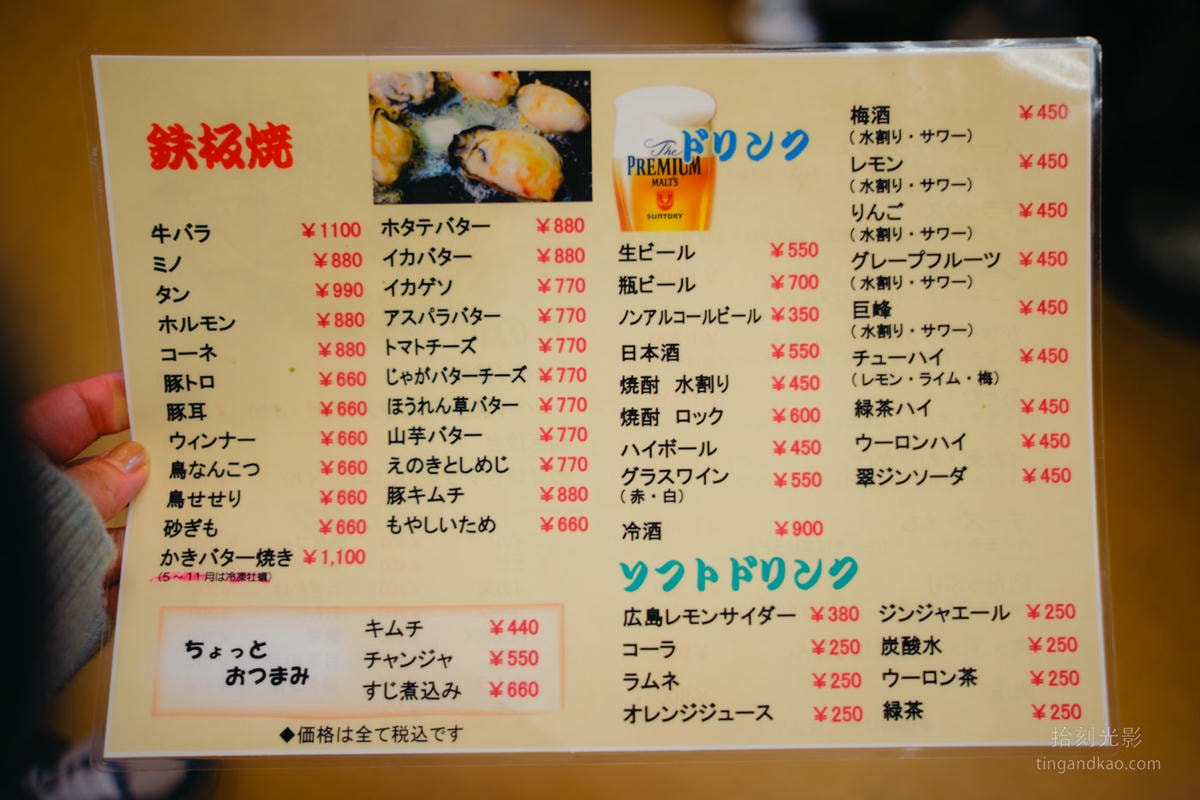 鉄板焼
牛バラ ￥1100
ミノ ￥880
タン ￥990
ホルモン ￥880
コーネ ￥880
豚トロ ￥660
豚耳 ￥660
ウィンナー ￥660
鳥なんこつ ￥660
鳥せせり ￥660
砂ぎも ￥660
かきバター焼き ￥1,100
（5～11月は冷凍牡蠣）
ホタテバター ￥880
イカバター ￥880
イカゲソ ￥770
アスパラバター ￥770
トマトチーズ ￥770
じゃがバターチーズ ￥770
ほうれん草バター ￥770
山芋バター ￥770
えのきとしめじ ￥770
豚キムチ ￥880
もやしいため ￥660
ちょっと
おつまみ
キムチ ￥440
チャンジャ ￥550
すじ煮込み ￥660
◆価格は全て税込です
The
PREMIUM
MALT'S
SUNTORY
ドリンク
生ビール ￥550
瓶ビール ￥700
ノンアルコールビール ￥350
日本酒 ￥550
焼酎 水割り ￥450
焼酎 ロック ￥600
ハイボール ￥450
グラスワイン ￥550
（赤・白）
冷酒 ￥900
梅酒 ￥450
（水割り・サワー）
レモン ￥450
（水割り・サワー）
りんご ￥450
（水割り・サワー）
グレープフルーツ ￥450
（水割り・サワー）
巨峰 ￥450
（水割り・サワー）
チューハイ ￥450
（レモン・ライム・梅）
緑茶ハイ ￥450
ウーロンハイ ￥450
翠ジンソーダ ￥450
ソフトドリンク
広島レモンサイダー ￥380
コーラ ￥250
ラムネ ￥250
オレンジジュース ￥250
ジンジャエール ￥250
炭酸水 ￥250
ウーロン茶 ￥250
緑茶 ￥250
拾刻光影
tingandkao.com